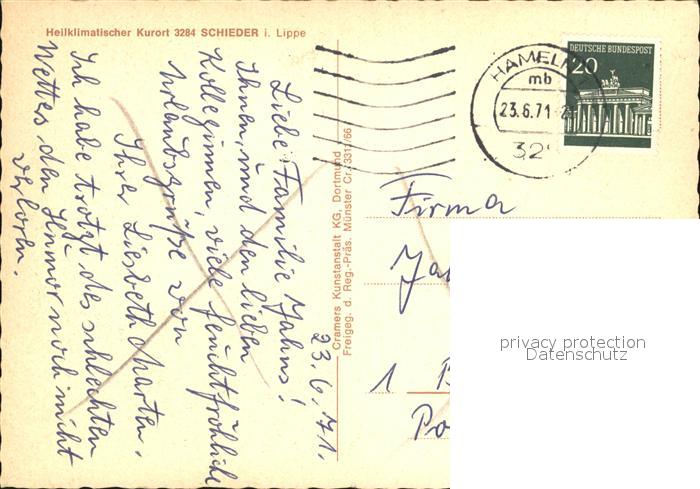 Heilklimatischer Kurort 3284 SCHIEDER i. Lippe
23.6.71.
Liebe Familie Jahns!
Ihnen, und den lieben
Kolleginnen, viele feuchtfröhliche
Urlaubsgrüße von
Ihrer Liesbeth Marten.
Ich habe trotzt des schlechten
Wettes den Humor noch nicht
verloren.
Cramers Kunstanstalt KG, Dortmund
Freigeg. d. Reg.-Präs. Münster Cr. 3311/66
HAMELN
mb
23.6.71
325
DEUTSCHE BUNDESPOST
20
Firma
Jah
1 B
Po
privacy protection
Datenschutz